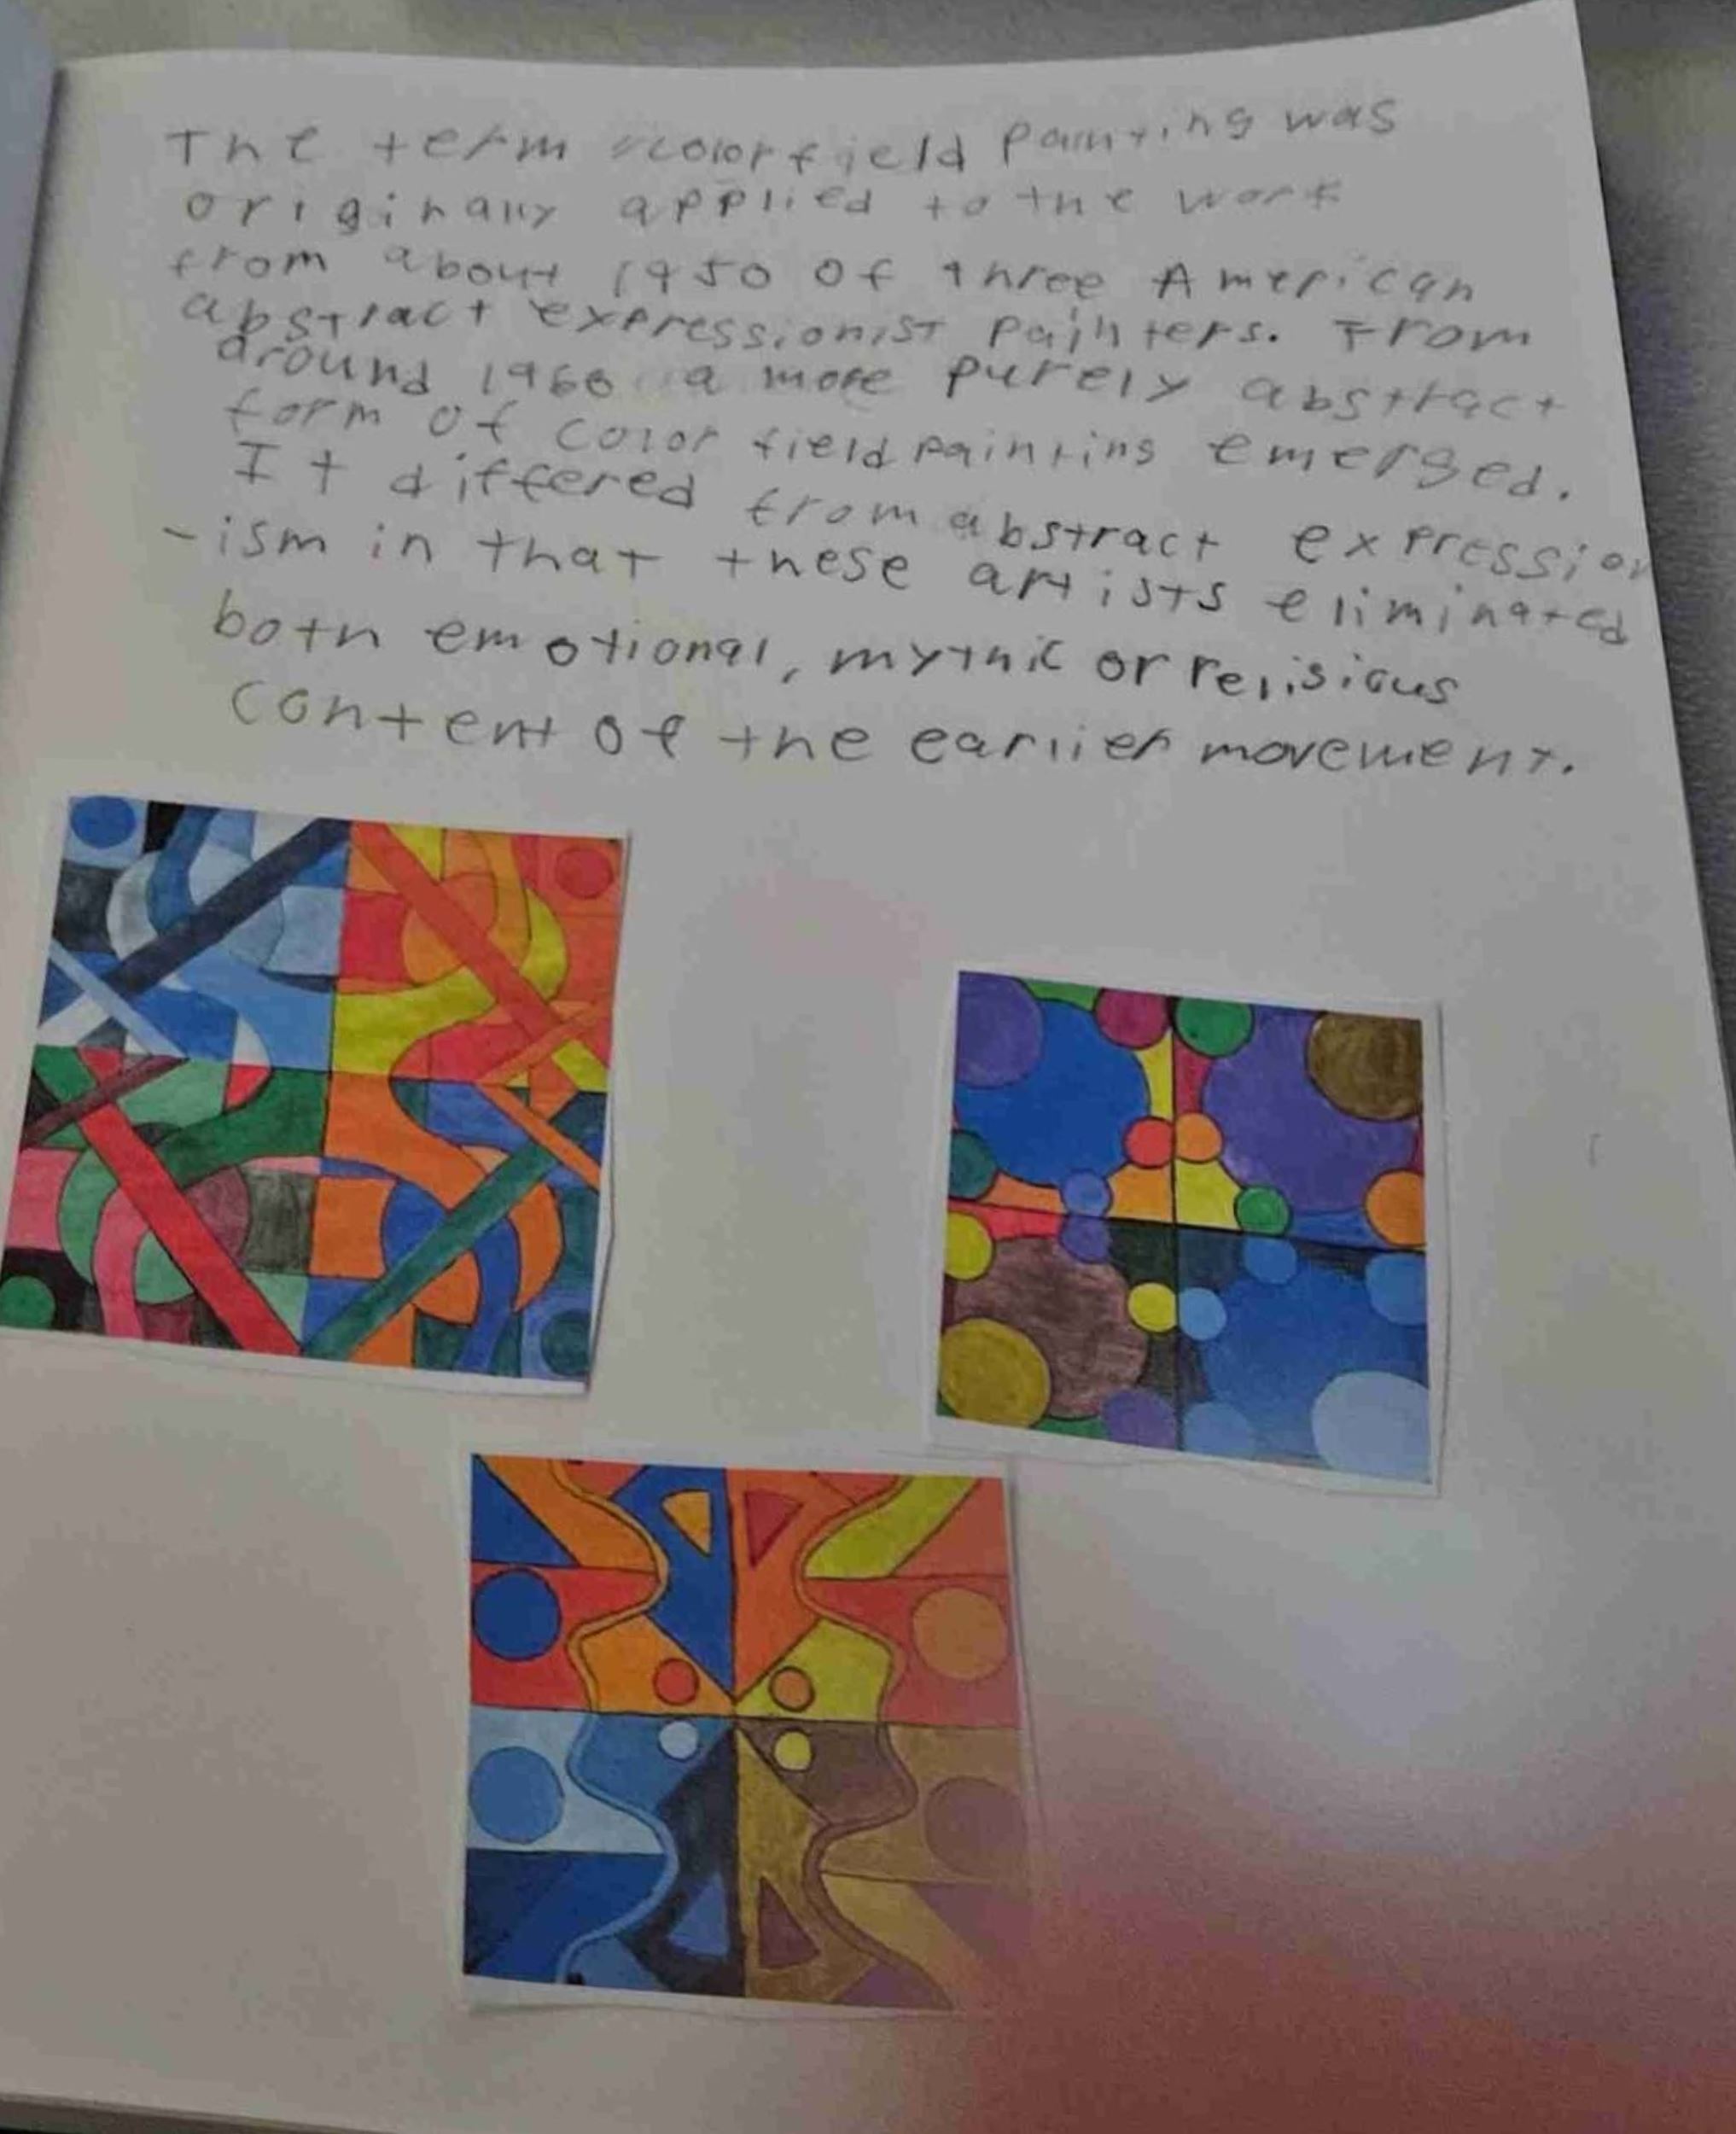 The term colorfield Painting was
originally applied to the work
from about 1950 of three American
abstract expressionist painters. From
around 1960 a more purely abstract
form of color field painting emerged.
It differed from abstract expression
-ism in that these artists eliminated
both emotional, mythic or religious
content of the earlier movement.